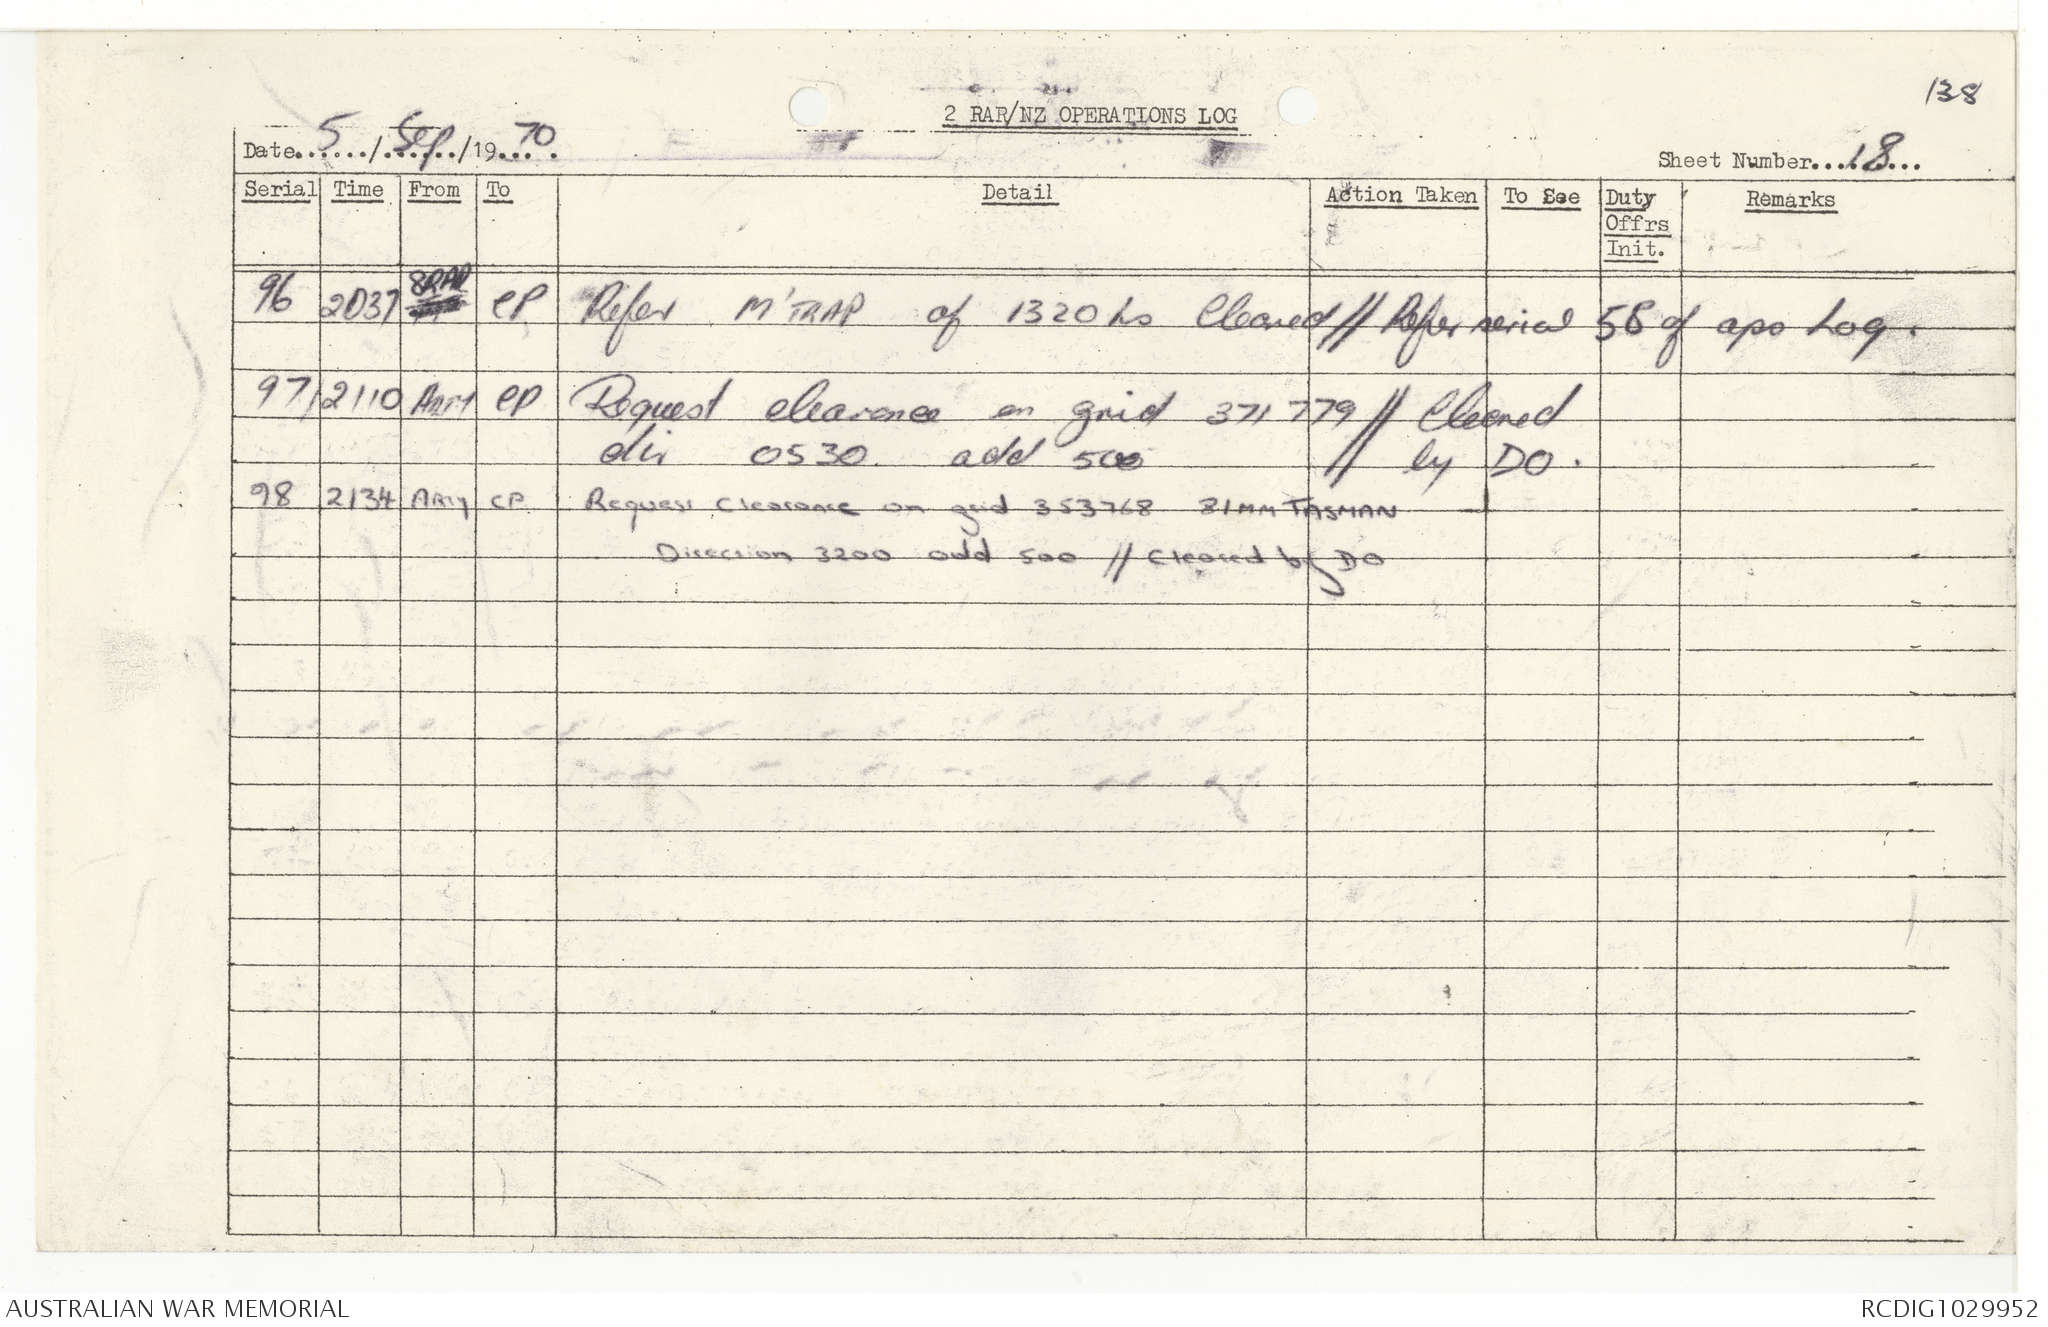 138
2 RAR/NZ OPERATIONS LOG
Date 5 / Sep / 19 70.
Sheet Number 18
Serial Time From To Detail Action Taken To See Duty Offrs Init. Remarks
96 2037 8RAR CP Refer M'TRAP of 1320 hs Cleared // Refer serial 58 of ops Log.
97 2110 Arty CP Request clearance on grid 371 779 // Cleared
dir 0530 add 500 // by DO.
98 2134 Arty CP Request Clearance on grid 353768 81MM TASMAN
Direction 3200 add 500 // Cleared by DO
AUSTRALIAN WAR MEMORIAL
RCDIG1029952